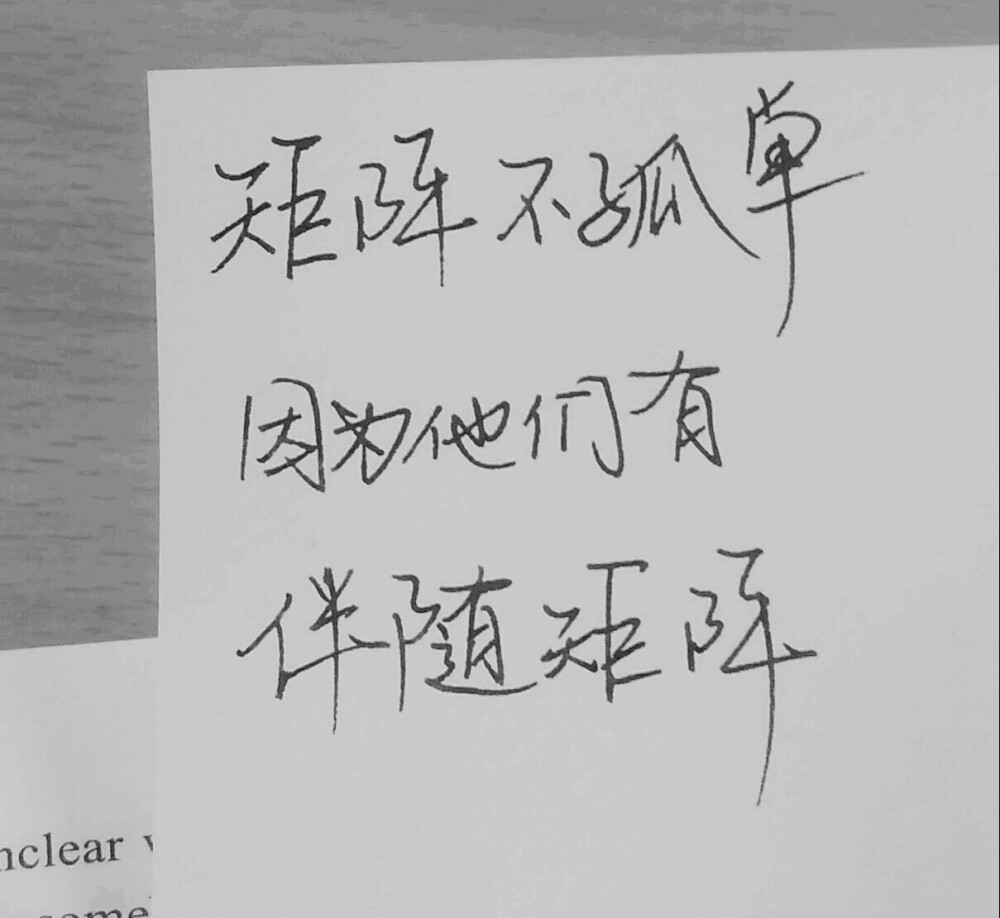 矩阵不孤单
因为他们有
伴随矩阵
nclear
some